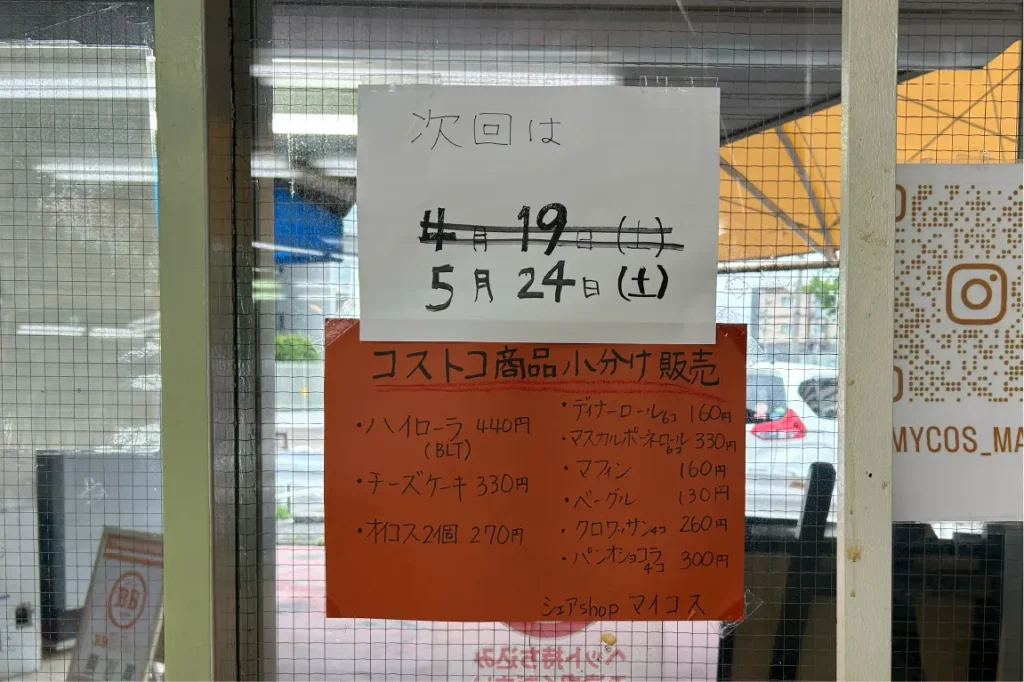 次回は
4月 19日 (土)
5月 24日 (土)
コストコ商品小分け販売
・ハイローラ 440円
(BLT)
・チーズケーキ 330円
・オイコス2個 270円
・ディナーロール6コ 160円
・マスカルポーネロール6コ 330円
・マフィン 160円
・ベーグル 130円
・クロワッサン4コ 260円
・パンオショコラ4コ 300円
シェアshop マイコス
MYCOS_MA
BB
ペット持ち込み